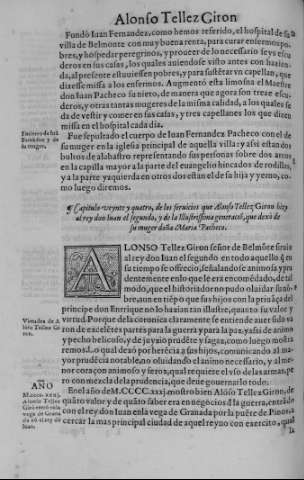 Alonso Tellez Giron
Fundò Iuan Fernandez, como hemos referido, el hospital de su
villa de Belmonte con muy buena renta, para curar enfermos po-
bres, y hospedar peregrinos, y proueer de lo necessario seys escu-
deros en sus casas, los quales auiendose visto antes con hazien-
da, al presente estuuiessen pobres, y para sustētar vn capellan, que
diresse missa a los enfermos. Augmentò esta limosna el Maestre
don Iuan Pacheco su nieto, de manera que agora son treze escu-
deros, y otras tantas mugeres de la misma calidad, a los quales se
da de vestir y comer en sus casas, y tres capellanes los que dizen
missa en el hospital cada dia.
Entierro de Iuā
Fernādez y de
su muger.
Fue sepultado el cuerpo de Iuan Fernandez Pacheco con el de
su muger en la iglesia principal de aquella villa y assi estan dos
bultos de alabastro representando sus personas sobre dos armas
en la capilla mayor a la parte del euangelio hincados de rodillas,
y a la parte yzquierda en otros dos estan el de su hija y yerno, co-
mo luego diremos.
¶ Capitulo veynte y quatro, de los seruicios que Alonso Tellez Giron hizo
al rey don Iuan el segundo, y de la Illustrissima generaciō, que dexò de
su muger doña Maria Pacheco.
ALONSO Tellez Giron señor de Belmōte siruio
al rey don Iuan el segundo en todo aquello q̄ en
su tiempo se ofrecio, señalandose animosa y pru
dentemente en lo que le era encomēdado, de tal
modo, que el historiador no pudo oluidar su nō-
bre, aun en tiēpo que sus hijos con la priuāça del
principe don Enrrique no le hauian tan illustre, quanto su valor y
Virtudes de A
lōso Tellez Gi
ron.
virtud. Porque de la coronica claramente se entiende auer sido va
ron de excelētes partes para la guerra y para la paz. y assi de animo
y pecho belicoso, y de juyzio prudēte y sagaz, como luego mostra
remos. Lo qual dexò por herēcia a sus hijos, comunicando al ma-
yor prudēcia notable, no oluidando el animo necessario, y al me-
nor coraçon animoso y feroz, qual requiere el vso de las armas, pe
ro con mezcla de la prudencia, que deue gouernarlo todo.
AÑO
M.cccc.xxxj.
Alonso Tellez
Girō entrò en la
vega de Grana-
da cō el rey dō
Iuan.
En el año de M.CCCC.xxxj. mostrò bien Alōso Tellez Giron, de
quāto valor y de quāto saber era en negocios d̄ la guerra, entrādo
con el rey don Iuan en la vega de Granada por la puēte de Pinos, a
cercar la mas principal ciudad de aquel reyno con exercito, qual